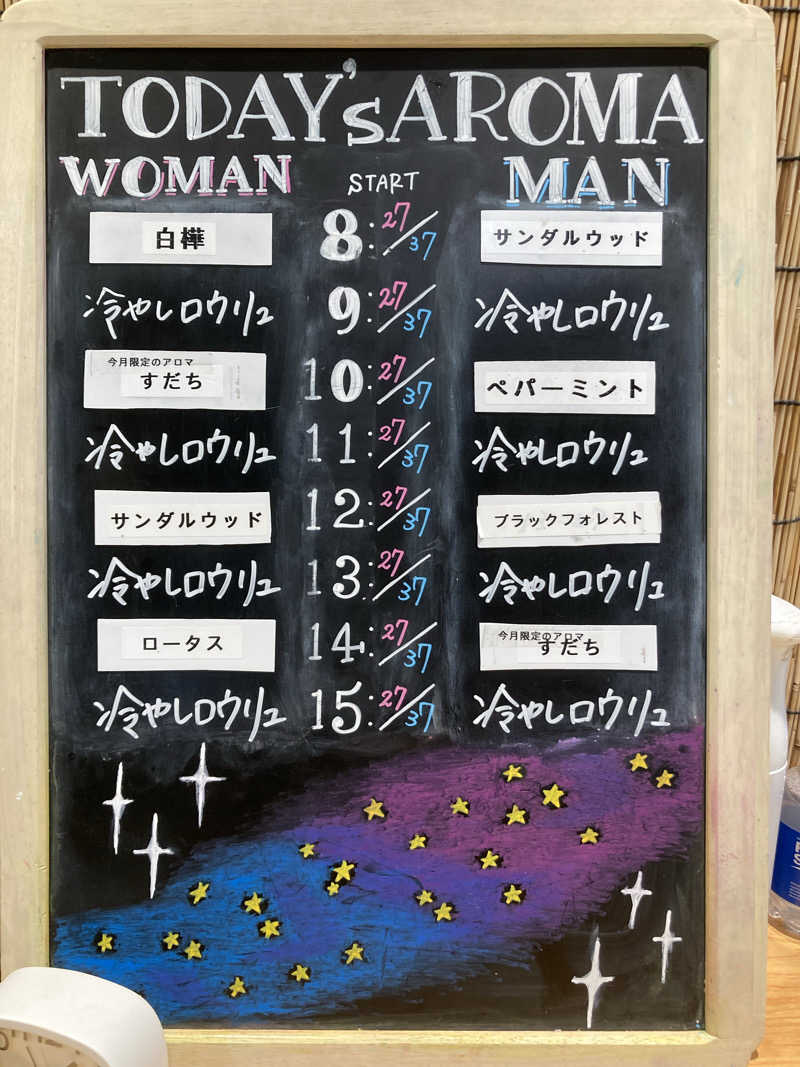 TODAY'S AROMA
WOMAN START MAN
白樺 8:27/37 サンダルウッド
冷やしロウリュ 9:27/37 冷やしロウリュ
今月限定のアロマ
すだち 10:27/37 ペパーミント
冷やしロウリュ 11:27/37 冷やしロウリュ
サンダルウッド 12:27/37 ブラックフォレスト
冷やしロウリュ 13:27/37 冷やしロウリュ
今月限定のアロマ
ロータス 14:27/37 すだち
冷やしロウリュ 15:27/37 冷やしロウリュ